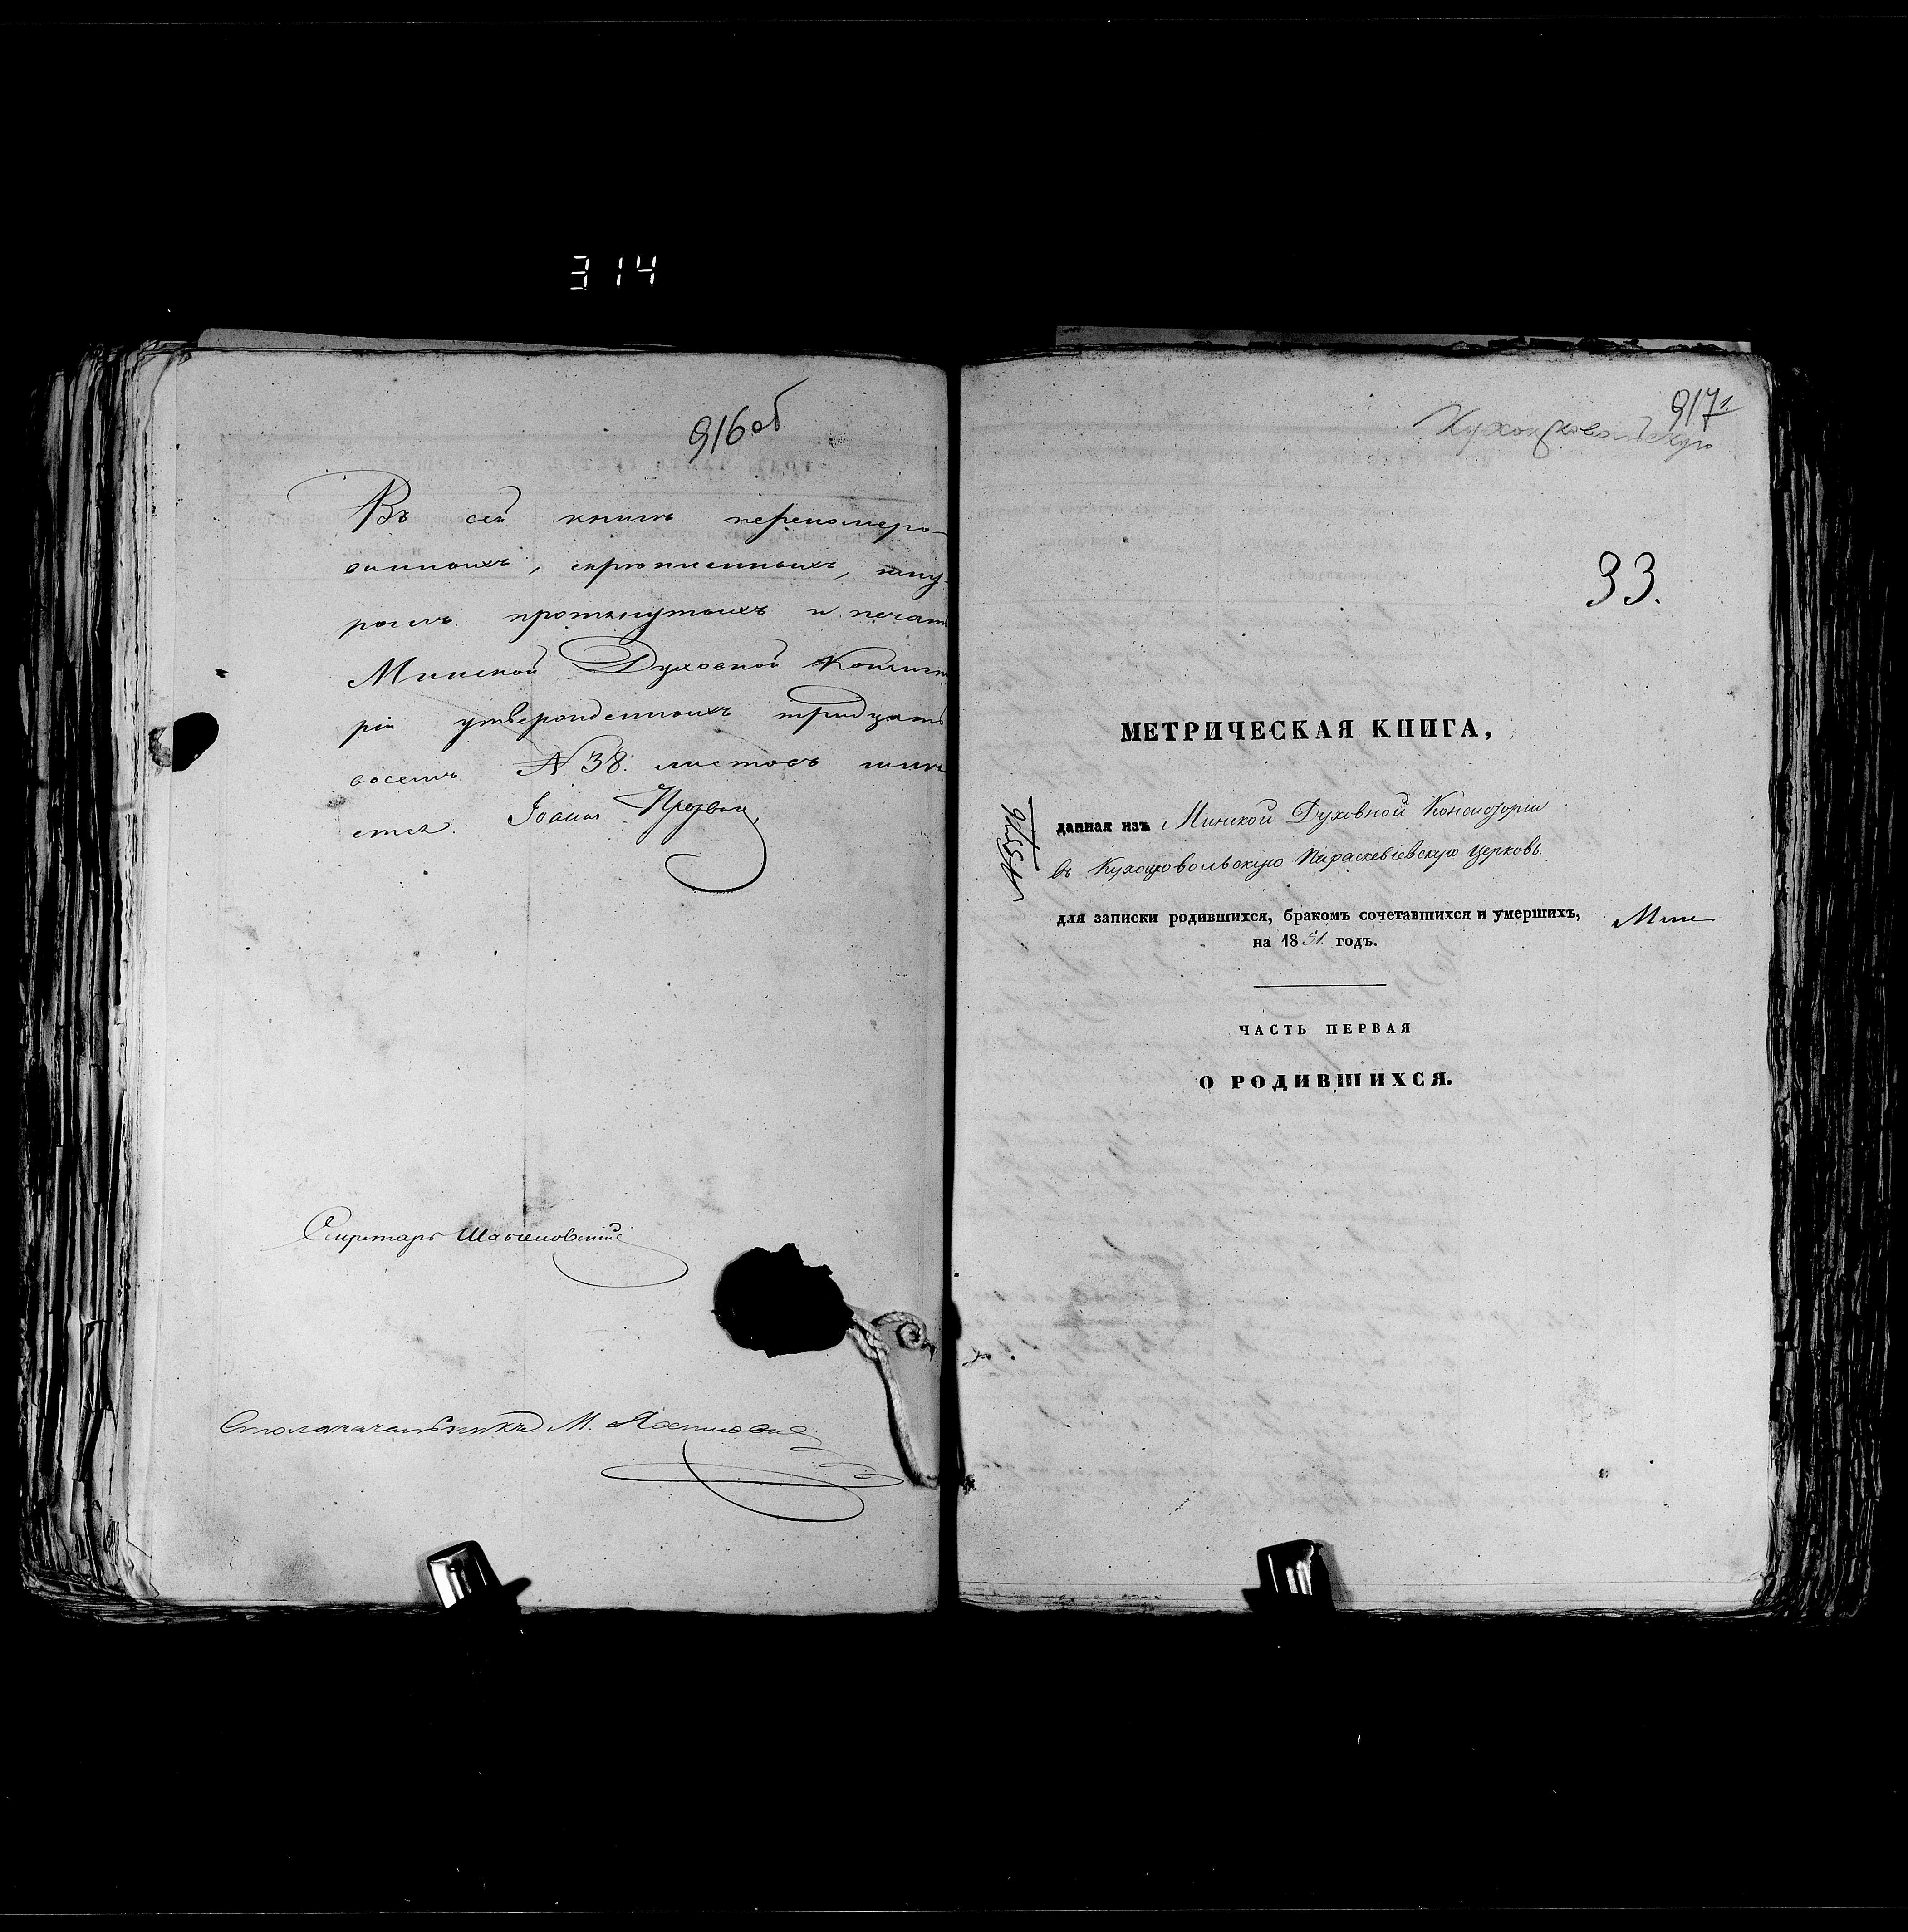 314
916об
Въ сей книгѣ перенумеро-
ванныхъ, скрѣпленныхъ, шну-
ромъ протянутыхъ и печат
Минской Духовной Консисто
ріи утвержденныхъ тридцать
восемь N 38. листовъ
Іоанн
Секретарь
Столоначальникъ М.
917
33.
МЕТРИЧЕСКАЯ КНИГА,
данная изъ Минской Духовной Консисторіи
въ Кухоцковольскую Параскевіевскую церковь
для записки родившихся, бракомъ сочетавшихся и умершихъ,
на 1851 годъ.
ЧАСТЬ ПЕРВАЯ
О РОДИВШИХСЯ.